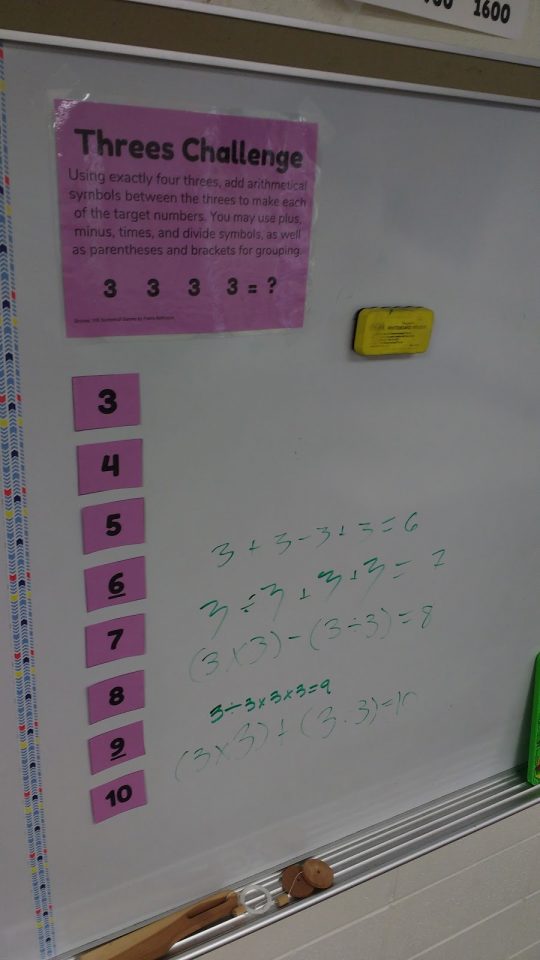 1600
Threes Challenge
Using exactly four threes, add arithmetical
symbols between the threes to make each
of the target numbers. You may use plus,
minus, times, and divide symbols, as well
as parentheses and brackets for grouping.
3 3 3 3 = ?
3
4
5
3 + 3 - 3 + 3 = 6
6
3 ÷ 3 + 3 + 3 = 7
7
(3 x 3) - (3 ÷ 3) = 8
8
3 ÷ 3 x 3 x 3 = 9
9
(3 x 3) + (3 3) = 10
10